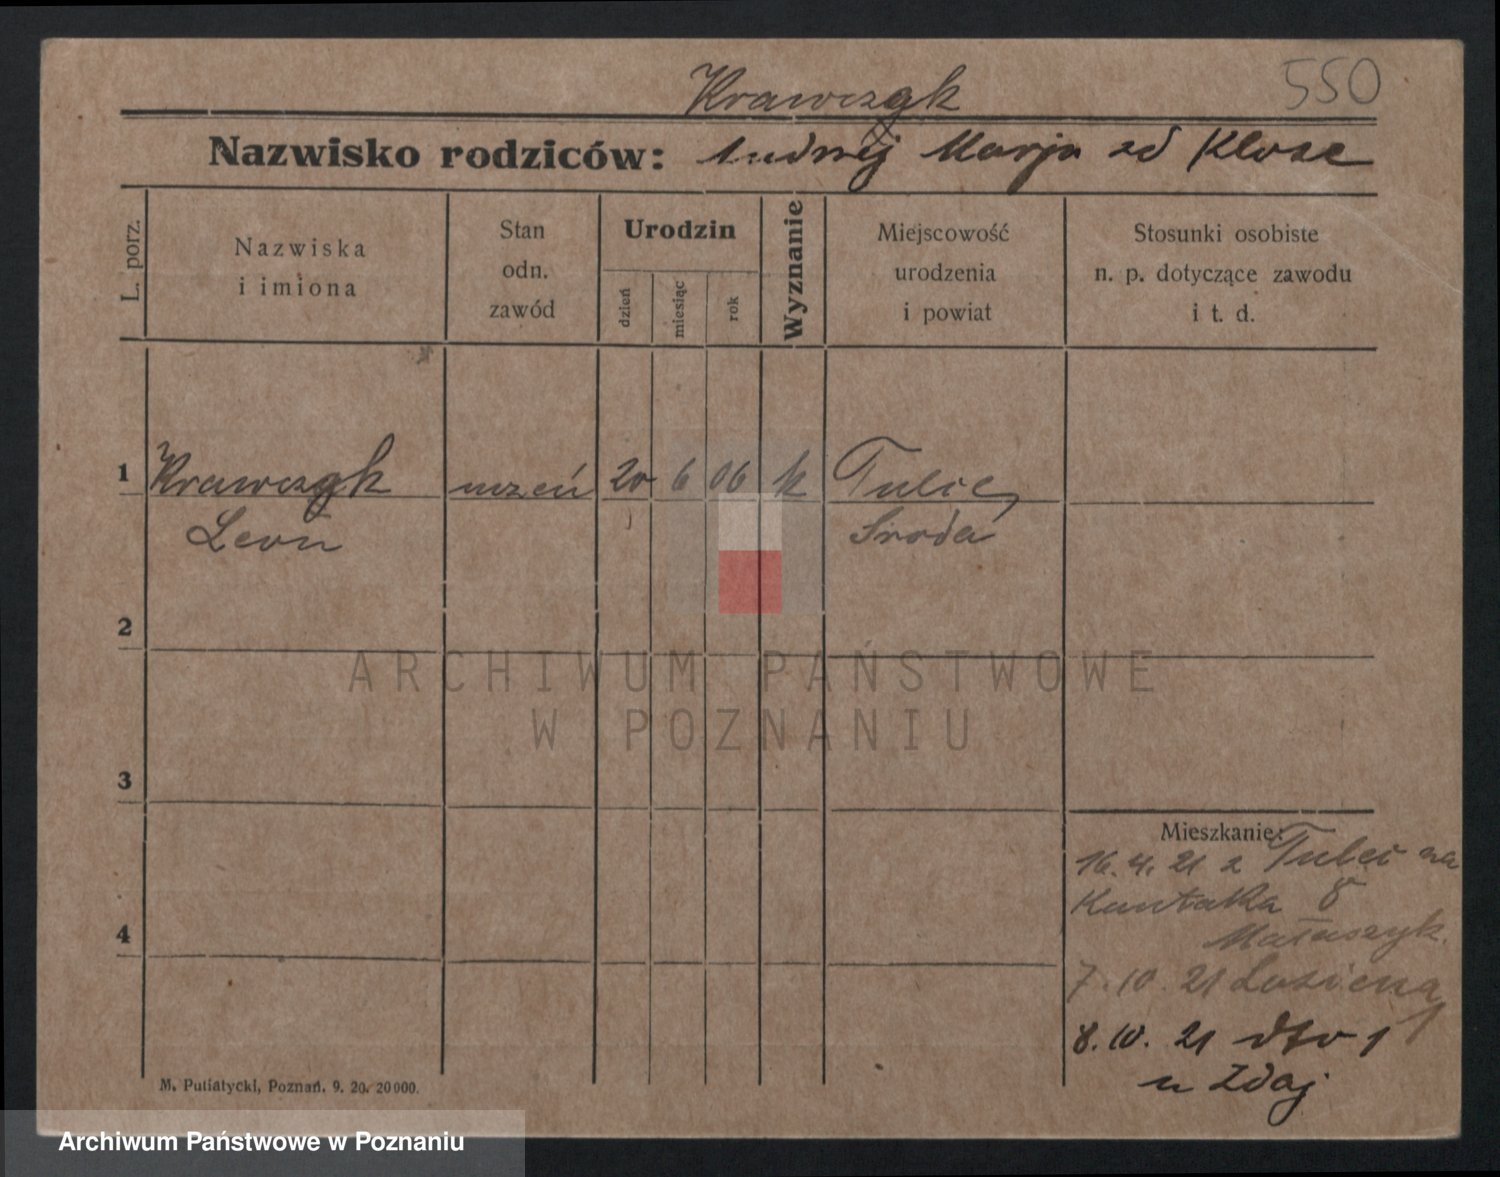 550
Krawczyk
Nazwisko rodziców: Andrzej Marja zd Klose
L. porz.
Nazwiska
i imiona
Stan
odn.
zawód
Urodzin
dzień
miesiąc
rok
Wyznanie
Miejscowość
urodzenia
i powiat
Stosunki osobiste
n. p. dotyczące zawodu
i t. d.
1 Krawczyk uczeń 20 6 06 k Tulce
Leon Środa
2
ARCHIWUM PAŃSTWOWE
W POZNANIU
3
Mieszkanie:
16. 4. 21 z Tulec na
Kantaka 8
Matuszyk.
4
7. 10. 21
8. 10. 21 dto 1
u Zdaj
M. Putiatycki, Poznań. 9. 20. 20000.
Archiwum Państwowe w Poznaniu